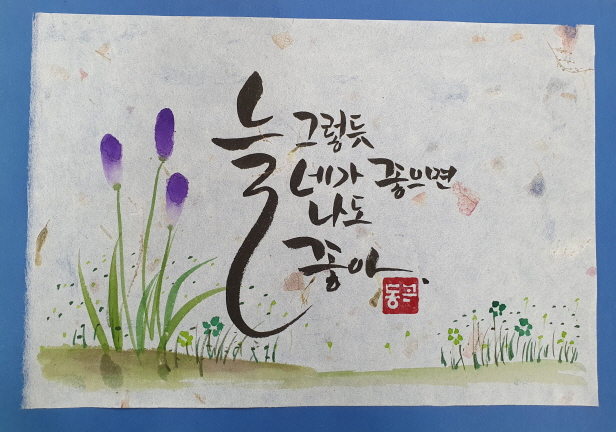 늘 그렇듯
네가 좋으면
나도
좋아.
동곤